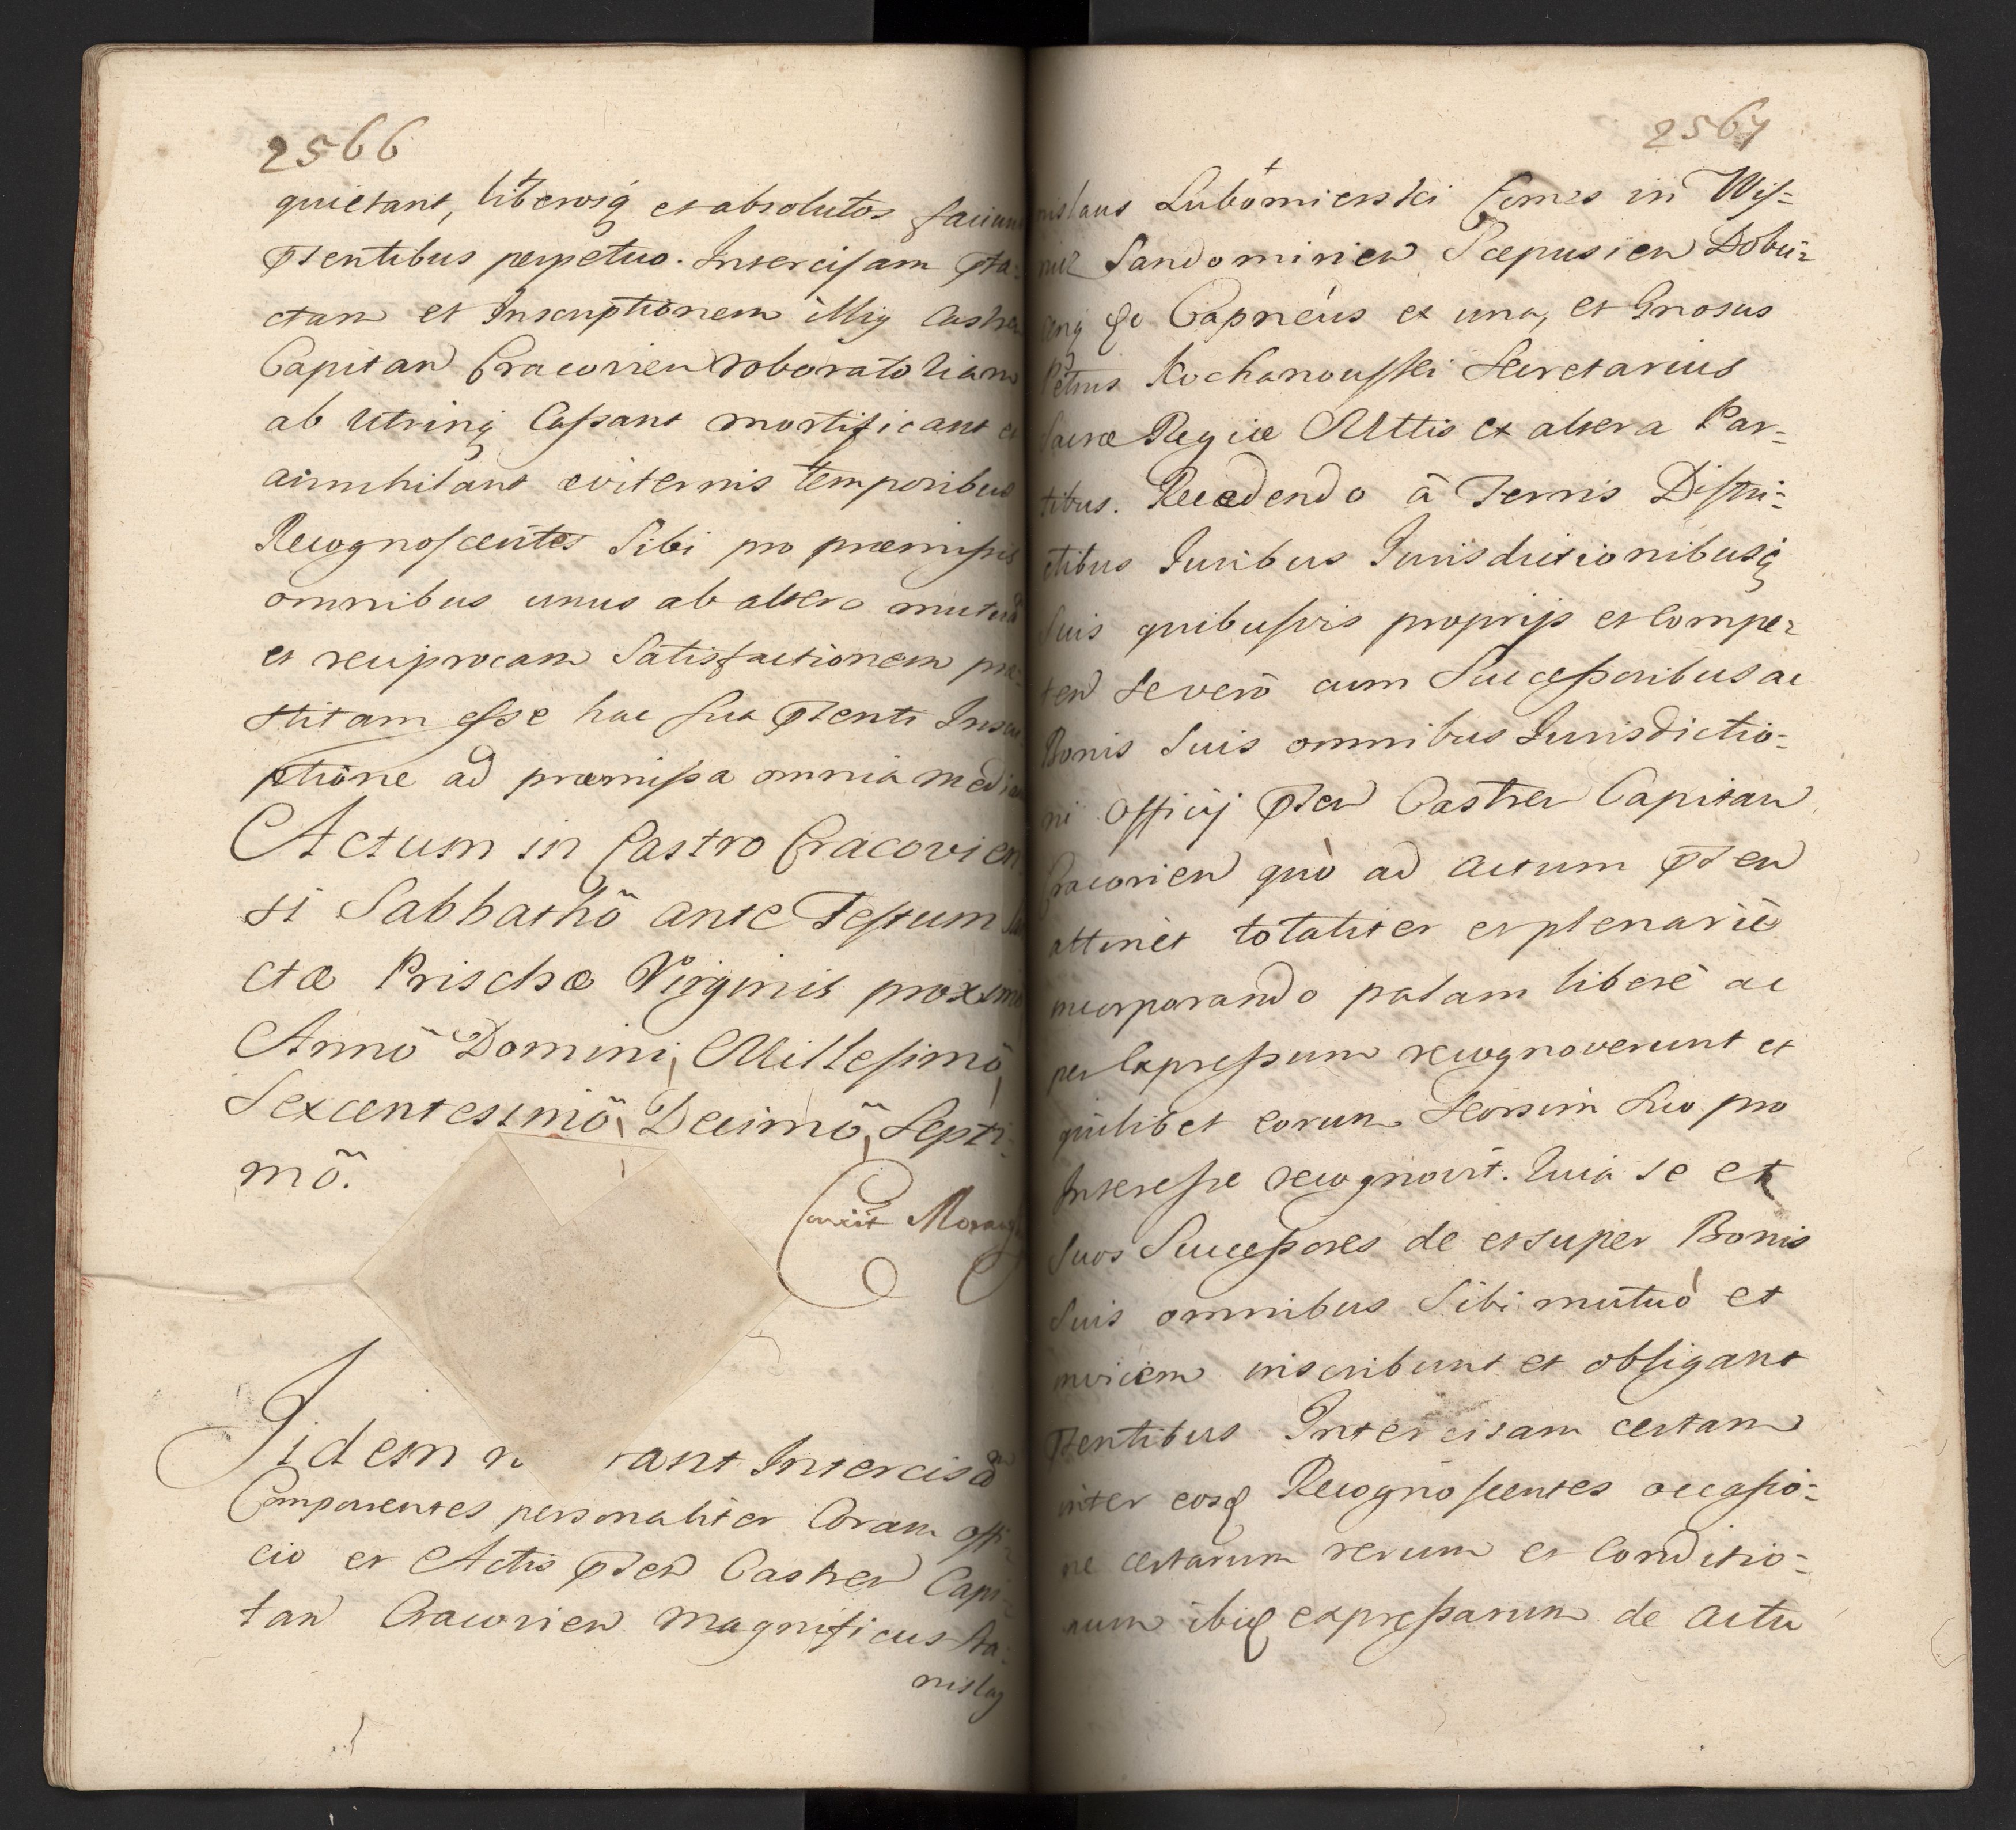 2566
quietant, liberosq et absolutos faciunt
pntentibus perpetuo. Intercisam pta-
ctam et Inscriptionem illiq Castren
Capitan Cracovien roborato
ab utrinq Cassant mortificant et
annihilant æviternis temporibus
Recognoscentes Sibi pro præmissis
omnibus unus ab altero mutuã
et reciprocam Satisfactionem præ-
stitam esse hac sua pnti Inscri-
ptiône ad præmissa omnia median
Actum in Castro Cracovien
si Sabbathõ ante Festum San
ctæ Prischæ Virginis proximo
Annõ Domini, Millesimõ,
Sexcentesimõ, Decimõ, Septi-
mõ.
Corrixit
Iidem rant Intercisã
Comparentes personaliter Coram offi-
cio et Actis pnten Castren Capi-
tan Cracovien Magnificus Sta-
nislaq
2567
nislaus Lubomierski Comes in Wis-
nicz Sandomirien Scepusien Dobci-
cenq &c Capnéus ex una, et Gnosus
Petrus Kochanousski Secretarius
Sacræ Regiæ Mttis ex altera Par-
tibus. Recedendo à Terris Distri-
ctibus Iuribus Iurisdictionibusq
Suis quibusvis proprijs et Compe-
ten se verò cum Successoribus ac
Bonis Suis omnibus Iurisdictio-
ni Officij pnten Castren Capitan
Cracovien quò ad actum pnten
attinet totaliter et plenariè
incorporando palam liberè ac
per Expressum recognoverunt et
quilibet eorum Seorsim Suo pro
Interesse recognovit. Quia se et
Suos Successores de et super Bonis
Suis omnibus Sibi mutuò et
invicem inscribunt et obligant
pntentibus Intercisam certam
inter eosq Recognoscentes occasio-
ne certarum rerum et Conditio-
num ibiq expressarum de actu